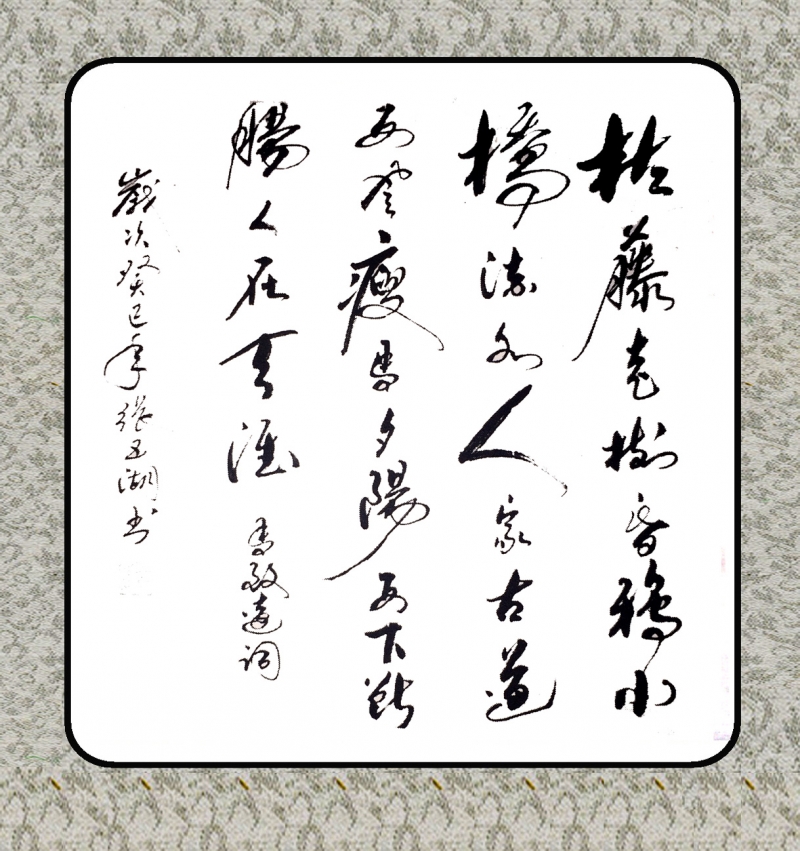 枯藤老樹昏鴉小
橋流水人家古道
西風瘦馬夕陽西下斷
腸人在天涯 馬致遠詞
歲次癸巳年張湖书